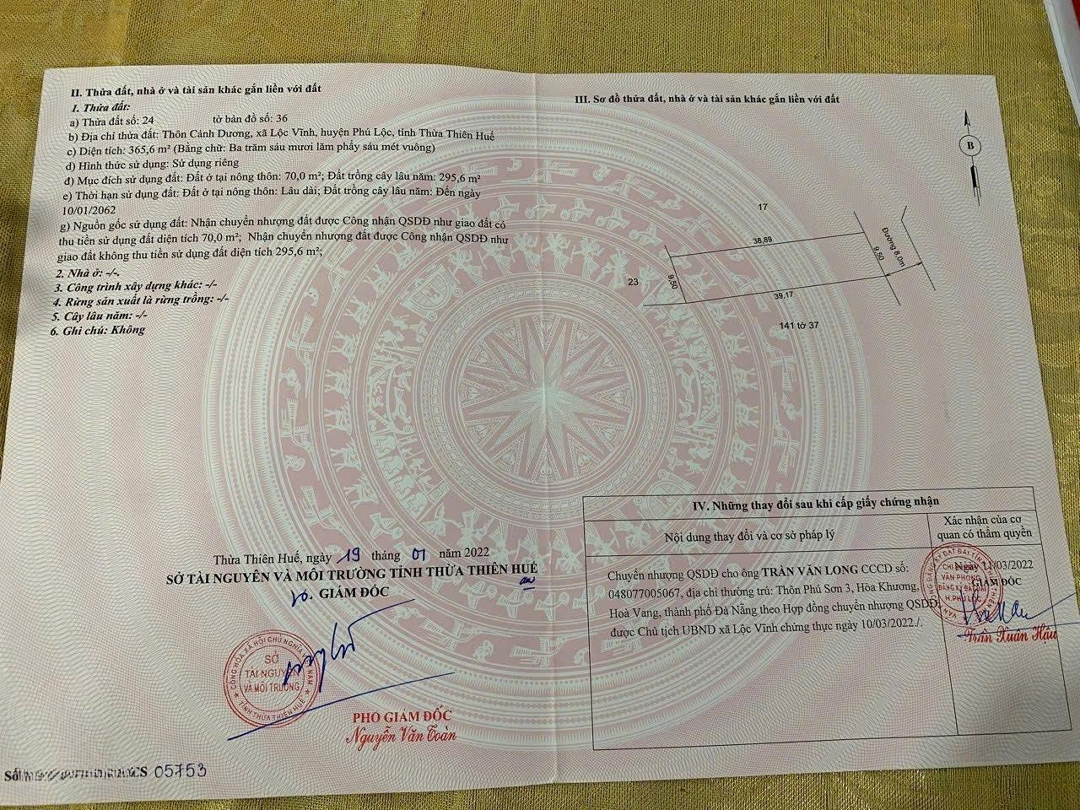 II. Thửa đất, nhà ở và tài sản khác gắn liền với đất
1. Thửa đất:
a) Thửa đất số: 24 tờ bản đồ số: 36
b) Địa chỉ thửa đất: Thôn Cảnh Dương, xã Lộc Vĩnh, huyện Phú Lộc, tỉnh Thừa Thiên Huế
c) Diện tích: 365,6 m² (Bằng chữ: Ba trăm sáu mươi lăm phẩy sáu mét vuông)
d) Hình thức sử dụng: Sử dụng riêng
đ) Mục đích sử dụng đất: Đất ở tại nông thôn: 70,0 m²; Đất trồng cây lâu năm: 295,6 m²
e) Thời hạn sử dụng đất: Đất ở tại nông thôn: Lâu dài; Đất trồng cây lâu năm: Đến ngày
10/01/2062
g) Nguồn gốc sử dụng đất: Nhận chuyển nhượng đất được Công nhận QSDĐ như giao đất có
thu tiền sử dụng đất diện tích 70,0 m²; Nhận chuyển nhượng đất được Công nhận QSDĐ như
giao đất không thu tiền sử dụng đất diện tích 295,6 m²;
2. Nhà ở: -/-.
3. Công trình xây dựng khác: -/-
4. Rừng sản xuất là rừng trồng: -/-
5. Cây lâu năm: -/-
6. Ghi chú: Không
Thừa Thiên Huế, ngày 19 tháng 01 năm 2022
SỞ TÀI NGUYÊN VÀ MÔI TRƯỜNG TỈNH THỪA THIÊN HUẾ
GIÁM ĐỐC
CỘNG HÒA XÃ HỘI CHỦ NGHĨA VIỆT NAM
SỞ
TÀI NGUYÊN
VÀ MÔI TRƯỜNG
TỈNH THỪA THIÊN HUẾ
PHÓ GIÁM ĐỐC
Nguyễn Văn Toàn
CS 05753
III. Sơ đồ thửa đất, nhà ở và tài sản khác gắn liền với đất
B
17
38,89
Đường 8,0m
9,50
23
9,50
39,17
141 tờ 37
IV. Những thay đổi sau khi cấp giấy chứng nhận
Nội dung thay đổi và cơ sở pháp lý
Xác nhận của cơ
quan có thẩm quyền
Chuyển nhượng QSDĐ cho ông TRẦN VĂN LONG CCCD số:
048077005067, địa chỉ thường trú: Thôn Phú Sơn 3, Hòa Khương,
Hoà Vang, thành phố Đà Nẵng theo Hợp đồng chuyển nhượng QSDĐ
được Chủ tịch UBND xã Lộc Vĩnh chứng thực ngày 10/03/2022./.
Ngày 11/03/2022
GIÁM ĐỐC
CHI NHÁNH
VĂN PHÒNG
ĐĂNG KÝ ĐẤT ĐAI
H. PHÚ LỘC
Trần Xuân Hậu